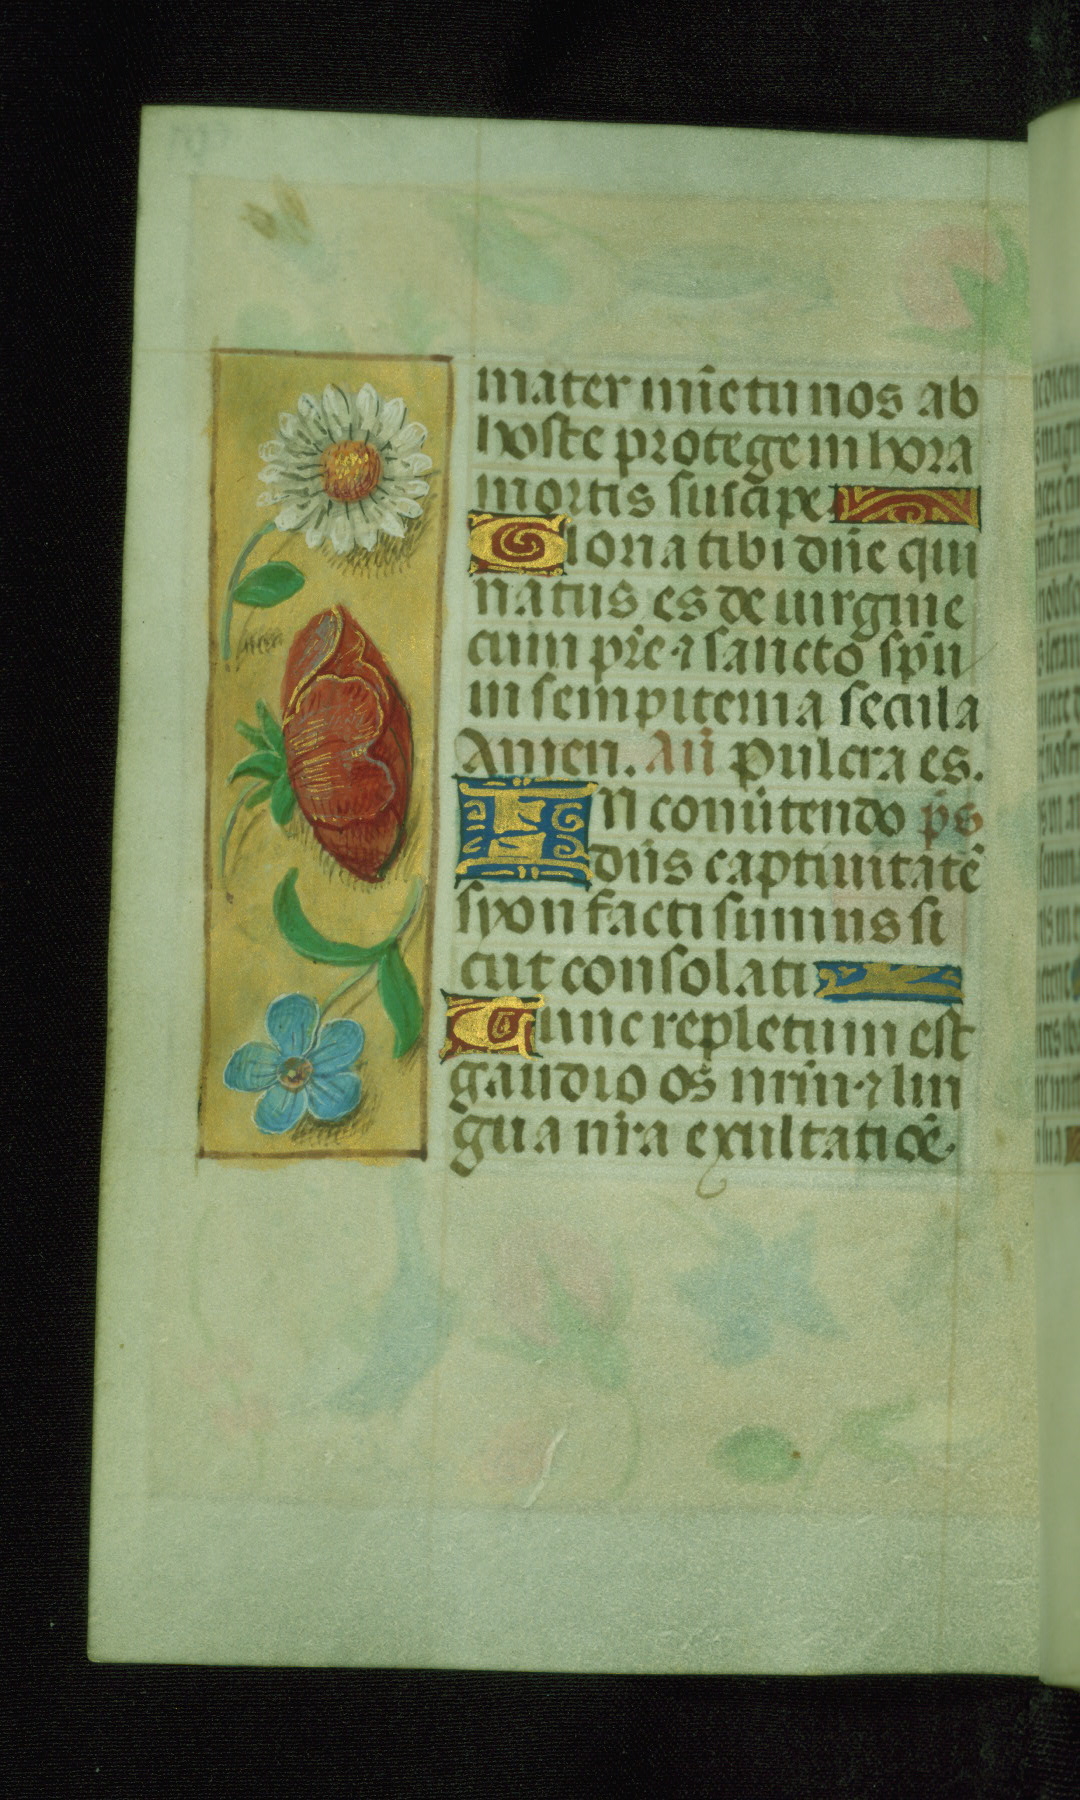 mater mīe tu nos ab
hoste protege in hora
mortis suscipe
Gloria tibi dñe qui
natus es de uirgine
cum pr̄e ⁊ sancto sp̄u
in sempiterna secula
Amen. Añ Pulcra es.
IN conuertendo p̄s
dñs captiuitatē
syon facti sumus si
cut consolati
Tunc repletum est
gaudio os nr̄m ⁊ lin
gua nr̄a exultatiōe.